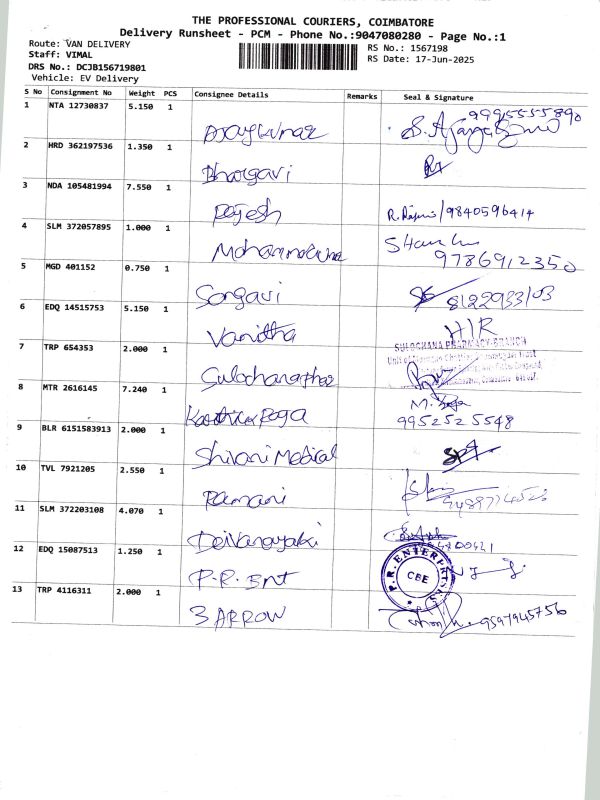 THE PROFESSIONAL COURIERS, COIMBATORE
Delivery Runsheet - PCM - Phone No.:9047080280 - Page No.:1
Route: VAN DELIVERY
RS No.: 1567198
Staff: VIMAL
RS Date: 17-Jun-2025
DRS No.: DCJB156719801
Vehicle: EV Delivery
S No Consignment No Weight PCS Consignee Details Remarks Seal & Signature
1 NTA 12730837 5.150 1 Ajaykumar
2 HRD 362197536 1.350 1 Bhargavi
3 NDA 105481994 7.550 1 Rajesh 9840596414
4 SLM 372057895 1.000 1 9786912350
5 MGD 401152 0.750 1 Sangavi
6 EDQ 14515753 5.150 1 Vanitha H/R
7 TRP 654353 2.000 1 SULOCHANA PHARMACY-BRANCH
8 MTR 2616145 7.240 1 9952525548
9 BLR 6151583913 2.000 1 Shivani Medical
10 TVL 7921205 2.550 1 Ramani
11 SLM 372203108 4.070 1 Deivanayaki
12 EDQ 15087513 1.250 1 P.R. Ent P.R. ENTERPRISES CBE
13 TRP 4116311 2.000 1 3 ARROW 9597945756